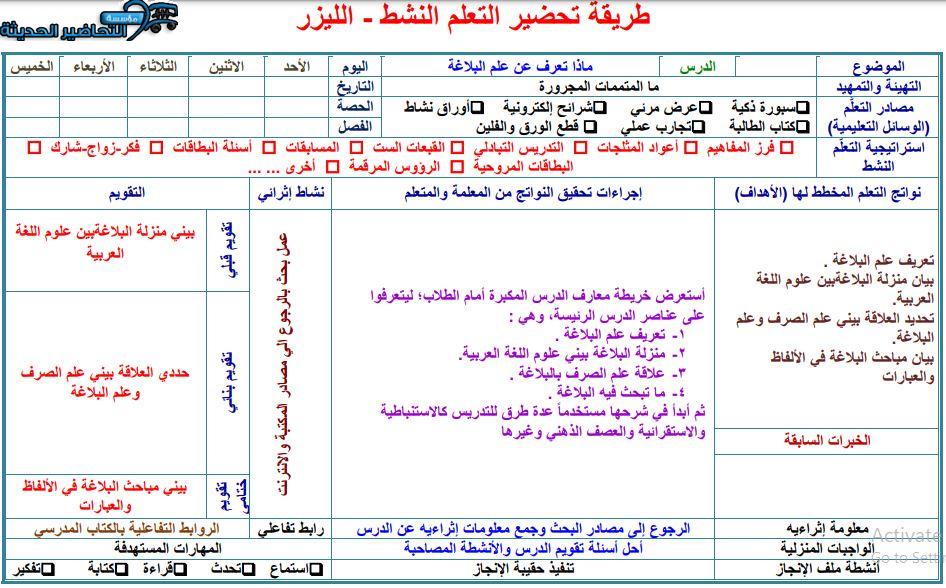 طريقة تحضير التعلم النشط - الليزر
مؤسسة
التحاضير الحديثة
الموضوع
الدرس
ماذا تعرف عن علم البلاغة
اليوم
الأحد
الاثنين
الثلاثاء
الأربعاء
الخميس
التهيئة والتمهيد
ما المتممات المجرورة
التاريخ
مصادر التعلّم
(الوسائل التعليمية)
سبورة ذكية
عرض مرئي
شرائح إلكترونية
أوراق نشاط
كتاب الطالبة
تجارب عملي
قطع الورق والفلين
الحصة
الفصل
استراتيجية التعلّم
النشط
فرز المفاهيم
أعواد المثلجات
التدريس التبادلي
القبعات الست
المسابقات
أسئلة البطاقات
فكر-زواج-شارك
البطاقات المروحية
الرؤوس المرقمة
أخرى ... ...
نواتج التعلم المخطط لها (الأهداف)
إجراءات تحقيق النواتج من المعلمة والمتعلم
نشاط إثرائي
التقويم
تعريف علم البلاغة .
بيان منزلة البلاغةبين علوم اللغة
العربية.
تحديد العلاقة بيني علم الصرف وعلم
البلاغة.
بيان مباحث البلاغة في الألفاظ
والعبارات
الخبرات السابقة
أستعرض خريطة معارف الدرس المكبرة أمام الطلاب؛ ليتعرفوا
على عناصر الدرس الرئيسة، وهي :
١- تعريف علم البلاغة .
٢- منزلة البلاغة بيني علوم اللغة العربية.
٣- علاقة علم الصرف بالبلاغة .
٤- ما تبحث فيه البلاغة .
ثم أبدأ في شرحها مستخدماً عدة طرق للتدريس كالاستنباطية
والاستقرائية والعصف الذهني وغيرها
عمل بحث بالرجوع الي مصادر المكتبة والانترنت
تقويم قبلي
بيني منزلة البلاغةبين علوم اللغة
العربية
تقويم بنائي
حددي العلاقة بيني علم الصرف
وعلم البلاغة
تقويم
ختامي
بيني مباحث البلاغة في الألفاظ
والعبارات
معلومة إثرائيه
الرجوع إلى مصادر البحث وجمع معلومات إثراءيه عن الدرس
رابط تفاعلي
الروابط التفاعلية بالكتاب المدرسي
الواجبات المنزلية
أحل أسئلة تقويم الدرس والأنشطة المصاحبة
المهارات المستهدفة
أنشطة ملف الإنجاز
تنفيذ حقيبة الإنجاز
استماع
تحدث
قراءة
كتابة
تفكير
Activate
Go to Sett